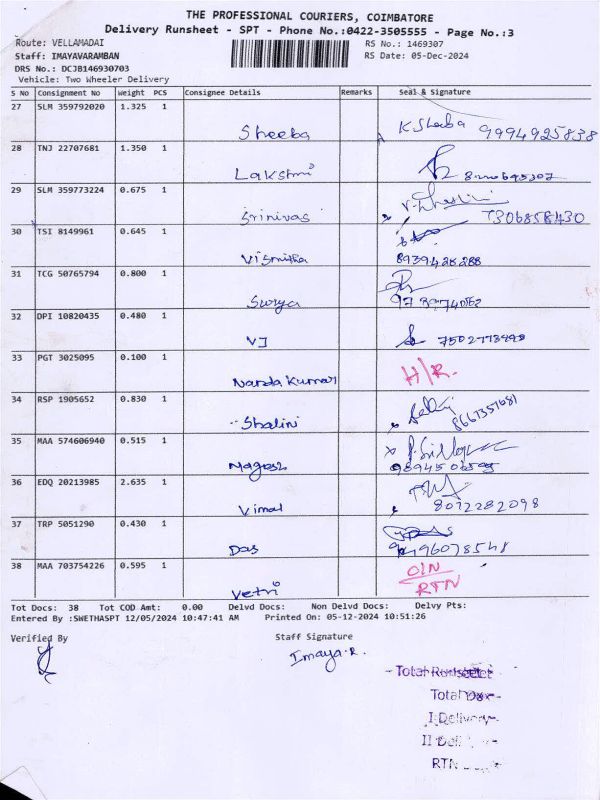 THE PROFESSIONAL COURIERS, COIMBATORE
Delivery Runsheet - SPT - Phone No.:0422-3505555 - Page No.:3
Route: VELLAMADAI RS No.: 1469307
Staff: IMAYAVARAMBAN RS Date: 05-Dec-2024
DRS No.: DCJB146930703
Vehicle: Two Wheeler Delivery
S No Consignment No Weight PCS Consignee Details Remarks Seal & Signature
27 SLM 359792020 1.325 1
Sheeba K Sheeba 9994925838
28 TNJ 22707681 1.350 1
Lakshmi
29 SLM 359773224 0.675 1
Srinivas 7306858430
30 TSI 8149961 0.645 1
Vismitha 8939428288
31 TCG 50765794 0.800 1
Surya
32 DPI 10820435 0.480 1
VJ
33 PGT 3025095 0.100 1
Nanda Kumar H/R.
34 RSP 1905652 0.830 1
Shalini 8667357681
35 MAA 574606940 0.515 1
Nagesh
36 EDQ 20213985 2.635 1
Vimal 8072282098
37 TRP 5051290 0.430 1
Das
38 MAA 703754226 0.595 1
Vetri OIN
RTN
Tot Docs: 38 Tot COD Amt: 0.00 Delvd Docs: Non Delvd Docs: Delvy Pts:
Entered By :SWETHASPT 12/05/2024 10:47:41 AM Printed On: 05-12-2024 10:51:26
Verified By Staff Signature
Imaya.R.
Total Runsheet
Total
I Delivery
II
RTN